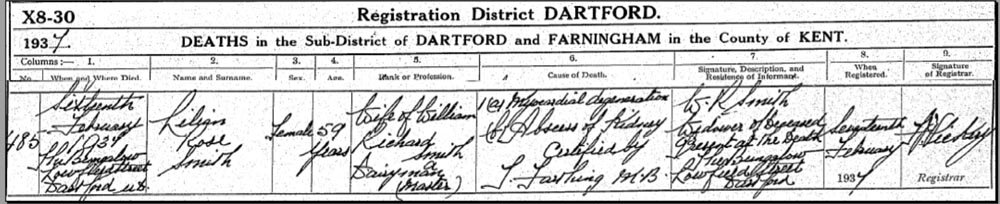 X8-30
Registration District DARTFORD.
1937. DEATHS in the Sub-District of DARTFORD and FARNINGHAM in the County of KENT.
Columns :— 1. 2. 3. 4. 5. 6. 7. 8. 9.
No. When and Where Died. Name and Surname. Sex. Age. Rank or Profession. Cause of Death. Signature, Description, and Residence of Informant. When Registered. Signature of Registrar.
485
Sixteenth
February
1937
The Bungalow
Lowfield Street
Dartford U.D.
Lilian
Rose
Smith
Female
59
years
Wife of William
Richard
Smith
Dairyman
(Master)
1(a) Myocardial degeneration
(b) Abscess of Kidney
Certified by
T. Farthing M.B.
W. R. Smith
Widower of Deceased
Present at the Death
The Bungalow
Lowfield Street
Dartford
Seventeenth
February
1937
Registrar